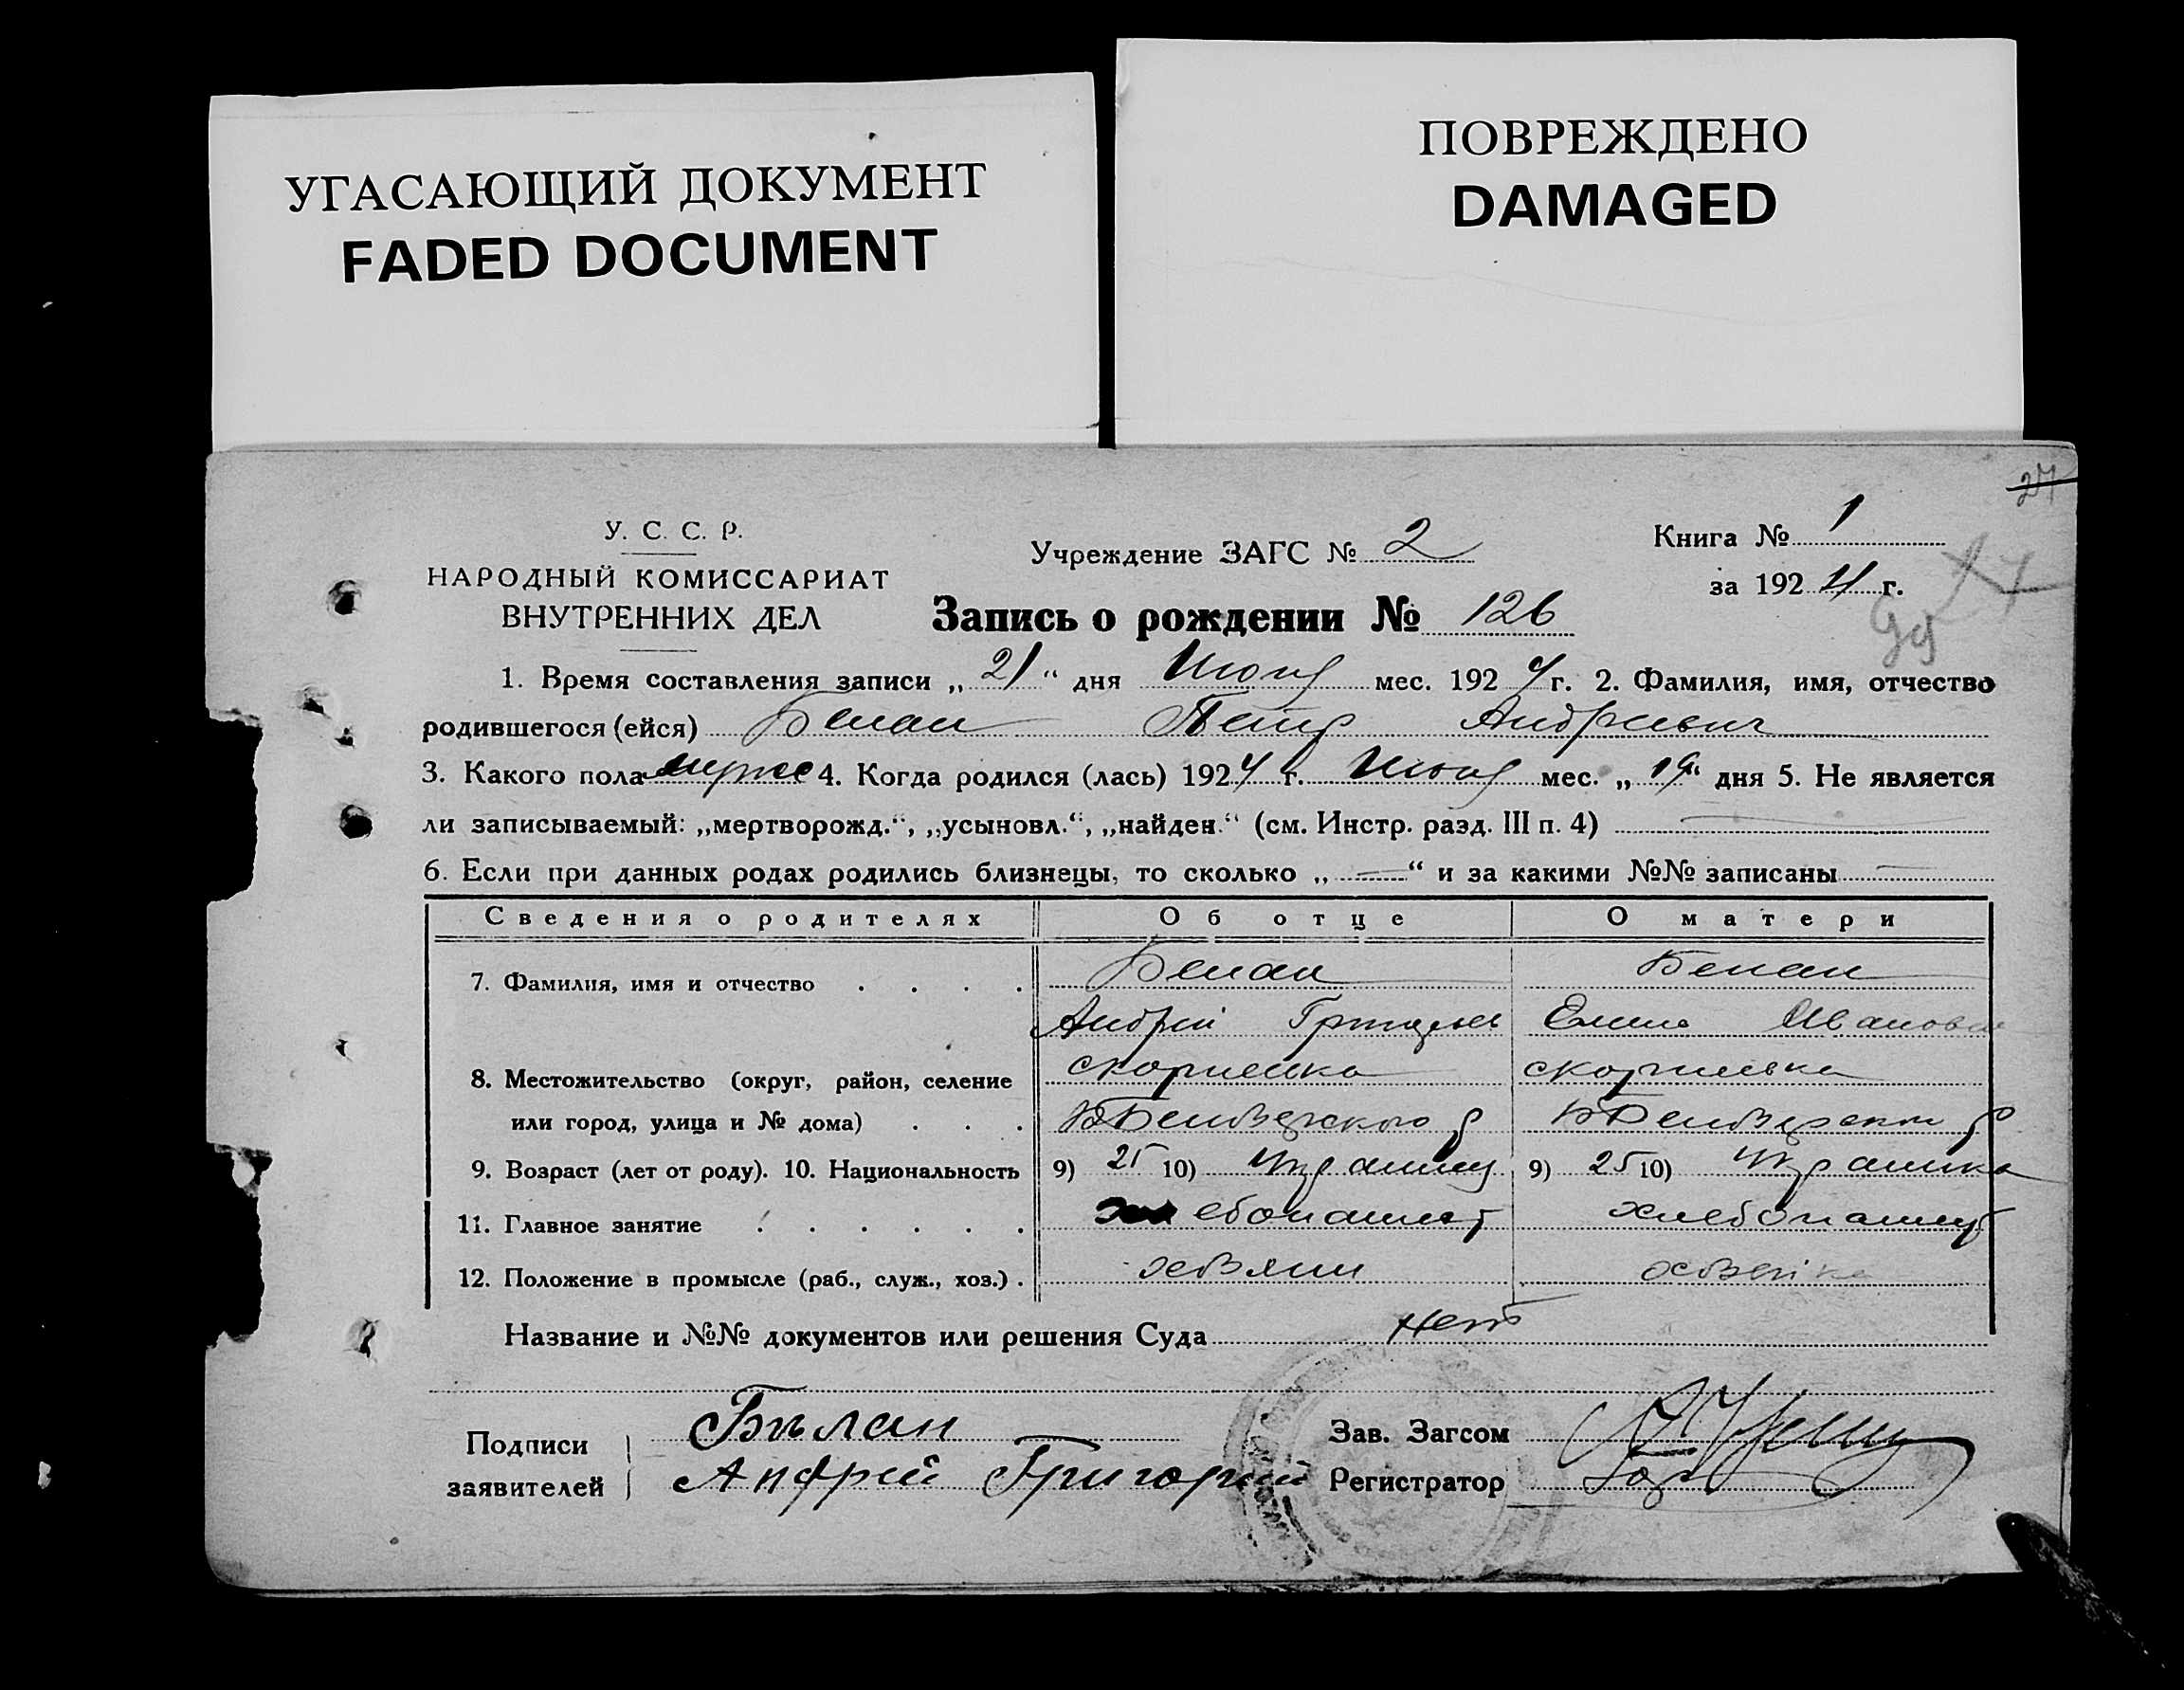 УГАСАЮЩИЙ ДОКУМЕНТ
FADED DOCUMENT
ПОВРЕЖДЕНО
DAMAGED
27
У. С. С. Р.
НАРОДНЫЙ КОМИССАРИАТ
ВНУТРЕННИХ ДЕЛ
Учреждение ЗАГС № 2
Книга № 1
за 1924 г.
Запись о рождении № 126
1. Время составления записи „ 21 “ дня Июня мес. 1924 г. 2. Фамилия, имя, отчество
родившегося (ейся) Белан Петр Андреевич
3. Какого пола мужс 4. Когда родился (лась) 1924 г. Июня мес. „ 19 “ дня 5. Не является
ли записываемый: „мертворожд.“, „усыновл.“, „найден.“ (см. Инстр. разд. III п. 4) —
6. Если при данных родах родились близнецы, то сколько „ — “ и за какими №№ записаны —
Сведения о родителях Об отце О матери
7. Фамилия, имя и отчество . . . . Белан Белан
Андрей Елена Ивановна
8. Местожительство (округ, район, селение
или город, улица и № дома) . . .
9. Возраст (лет от роду). 10. Национальность 9) 25 10) 9) 25 10) Украинка
11. Главное занятие . . . . . . хлебопашец
12. Положение в промысле (раб., служ., хоз.) . хозяин хозяйка
Название и №№ документов или решения Суда нет
Подписи
заявителей
Бѣлан
Андрей Григорий
Зав. Загсом
Регистратор